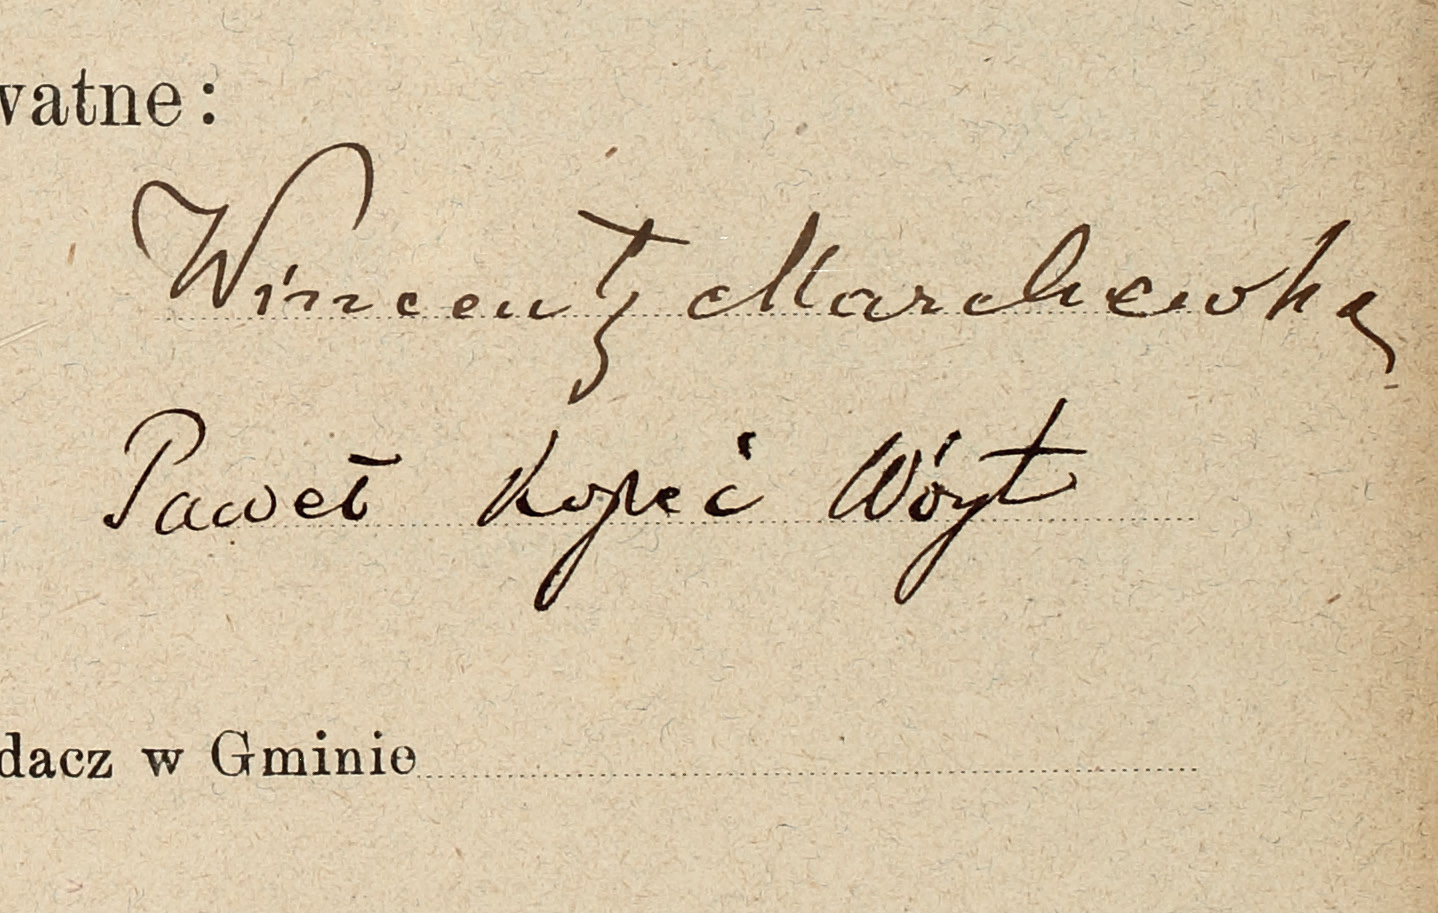 watne:
Wincenty Marchewka
Paweł Kopeć Wóyt
dacz w Gminie